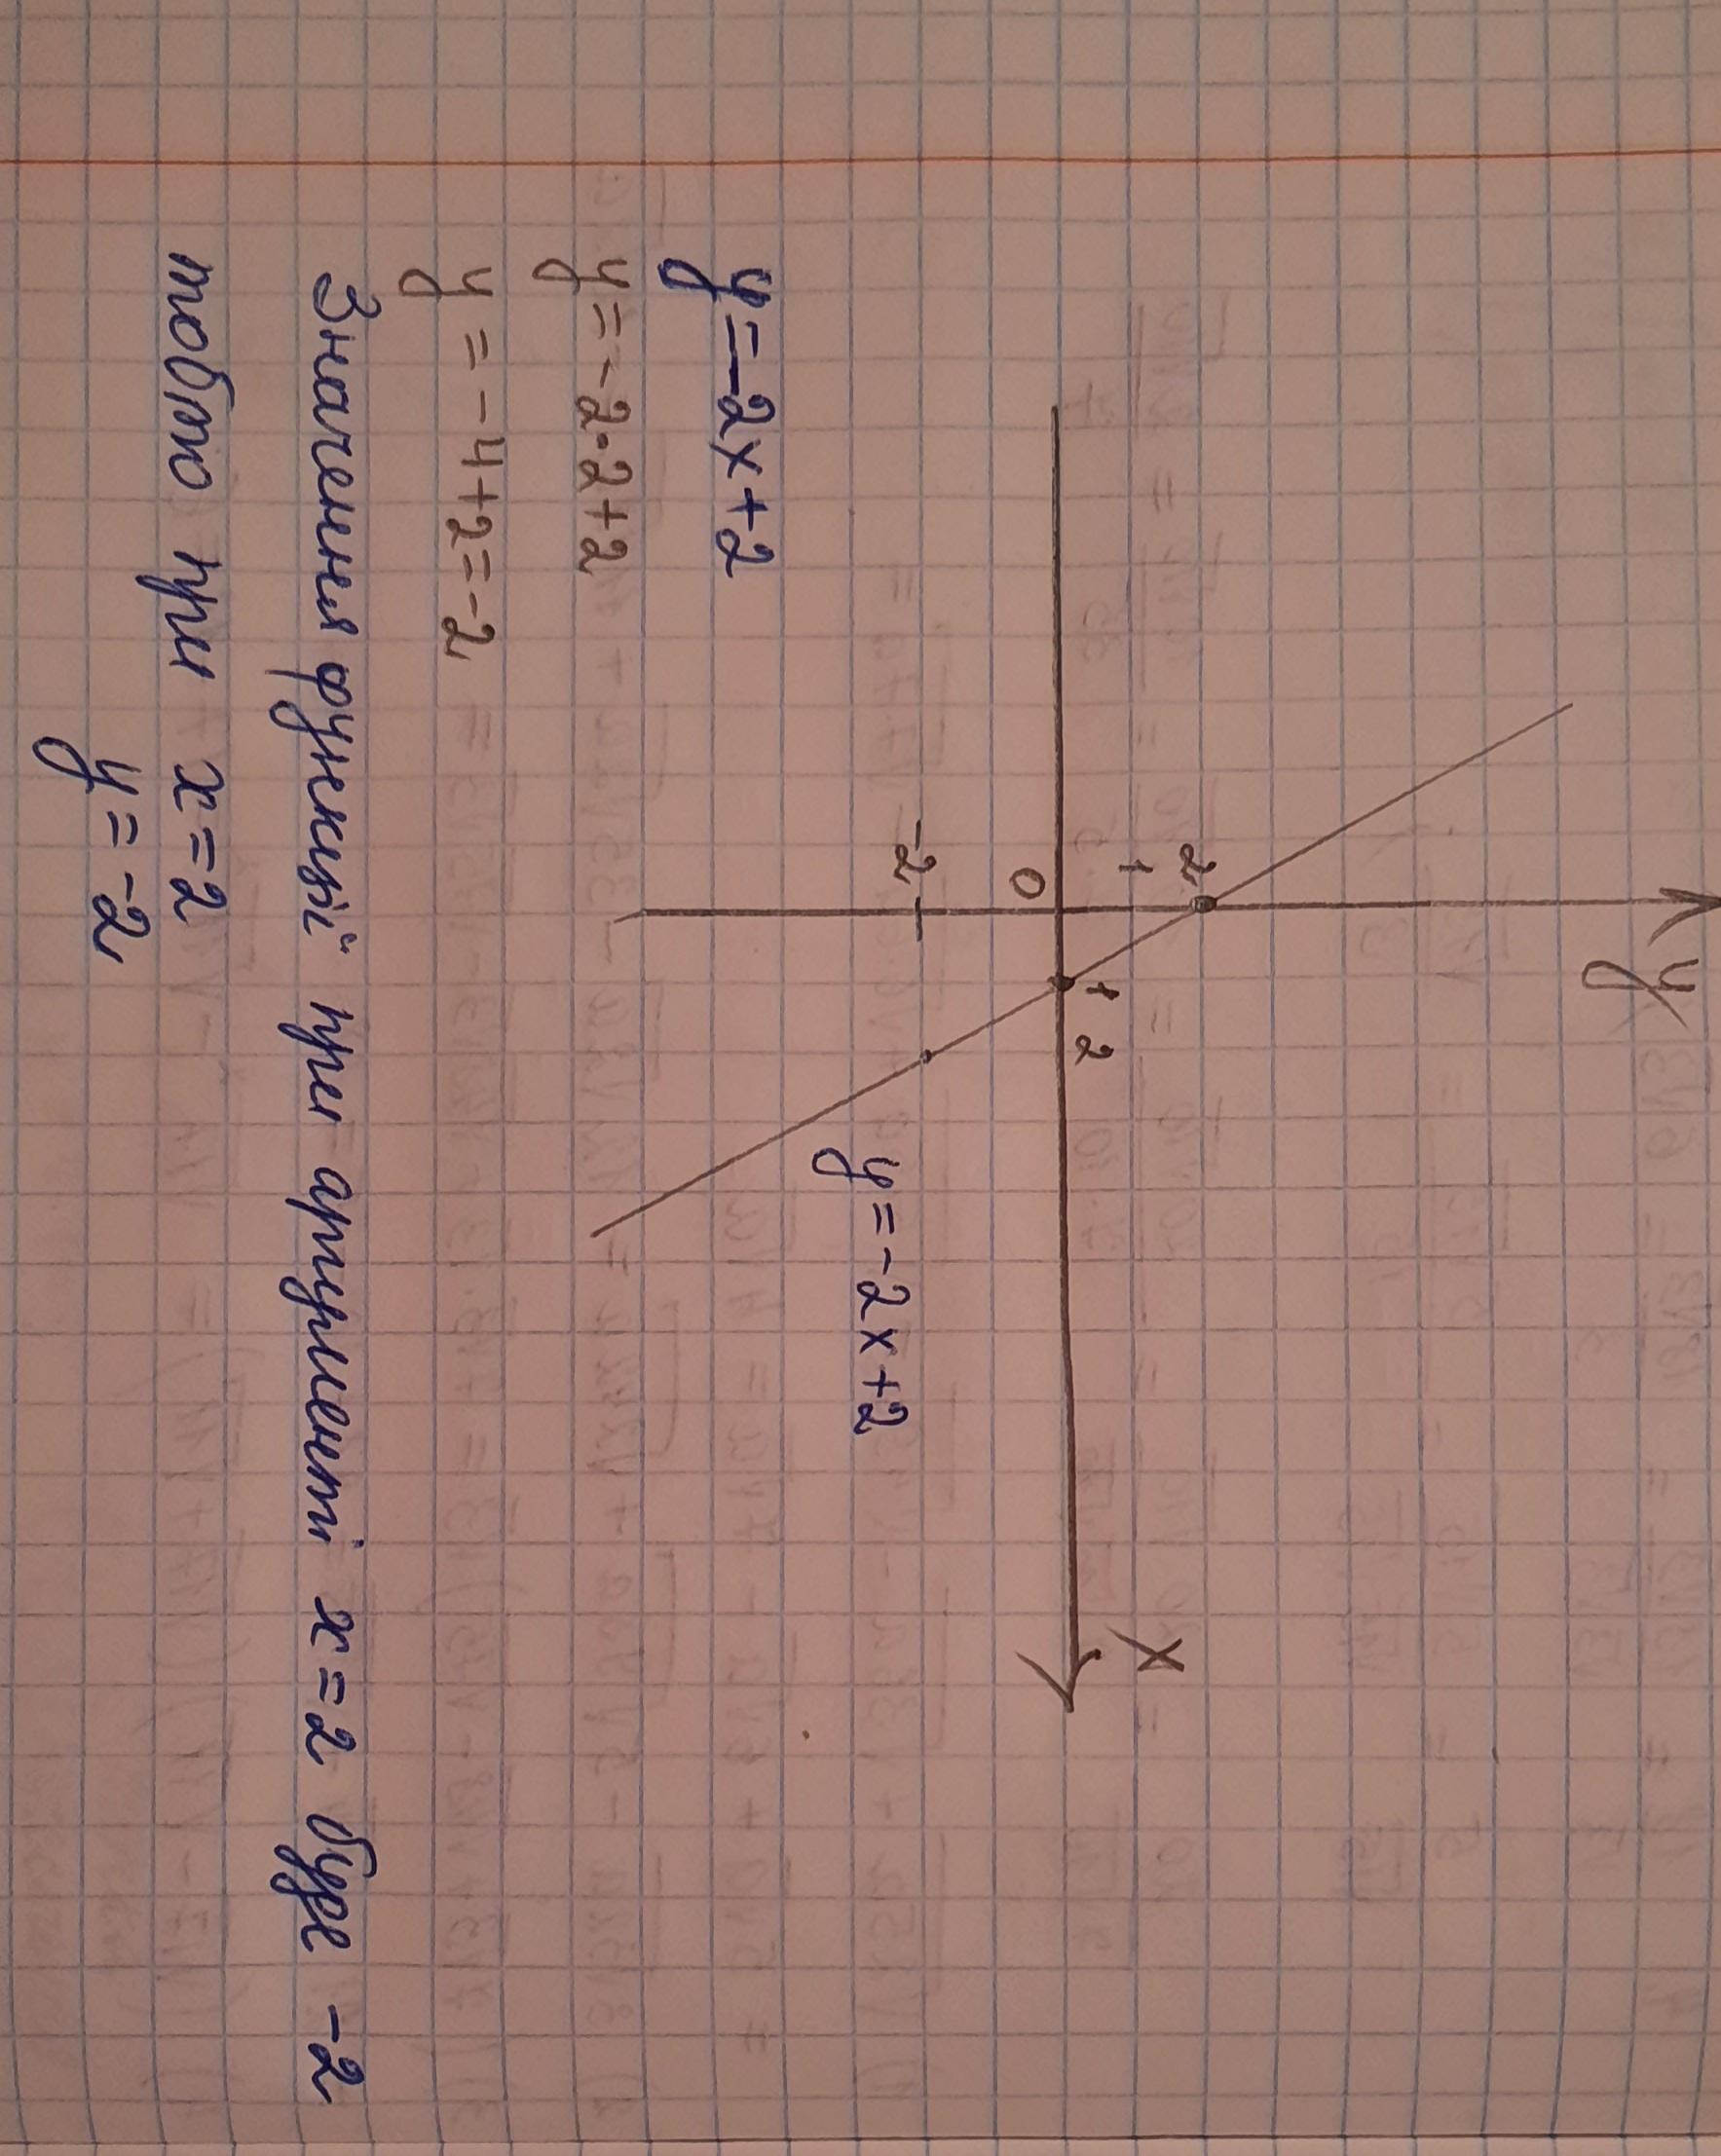 y
x
2
1
0
1
2
-2
y=-2x+2
y=-2x+2
y=-2·2+2
y=-4+2=-2
Значення функції при аргументі x=2 буде -2
тобто при x=2
y=-2